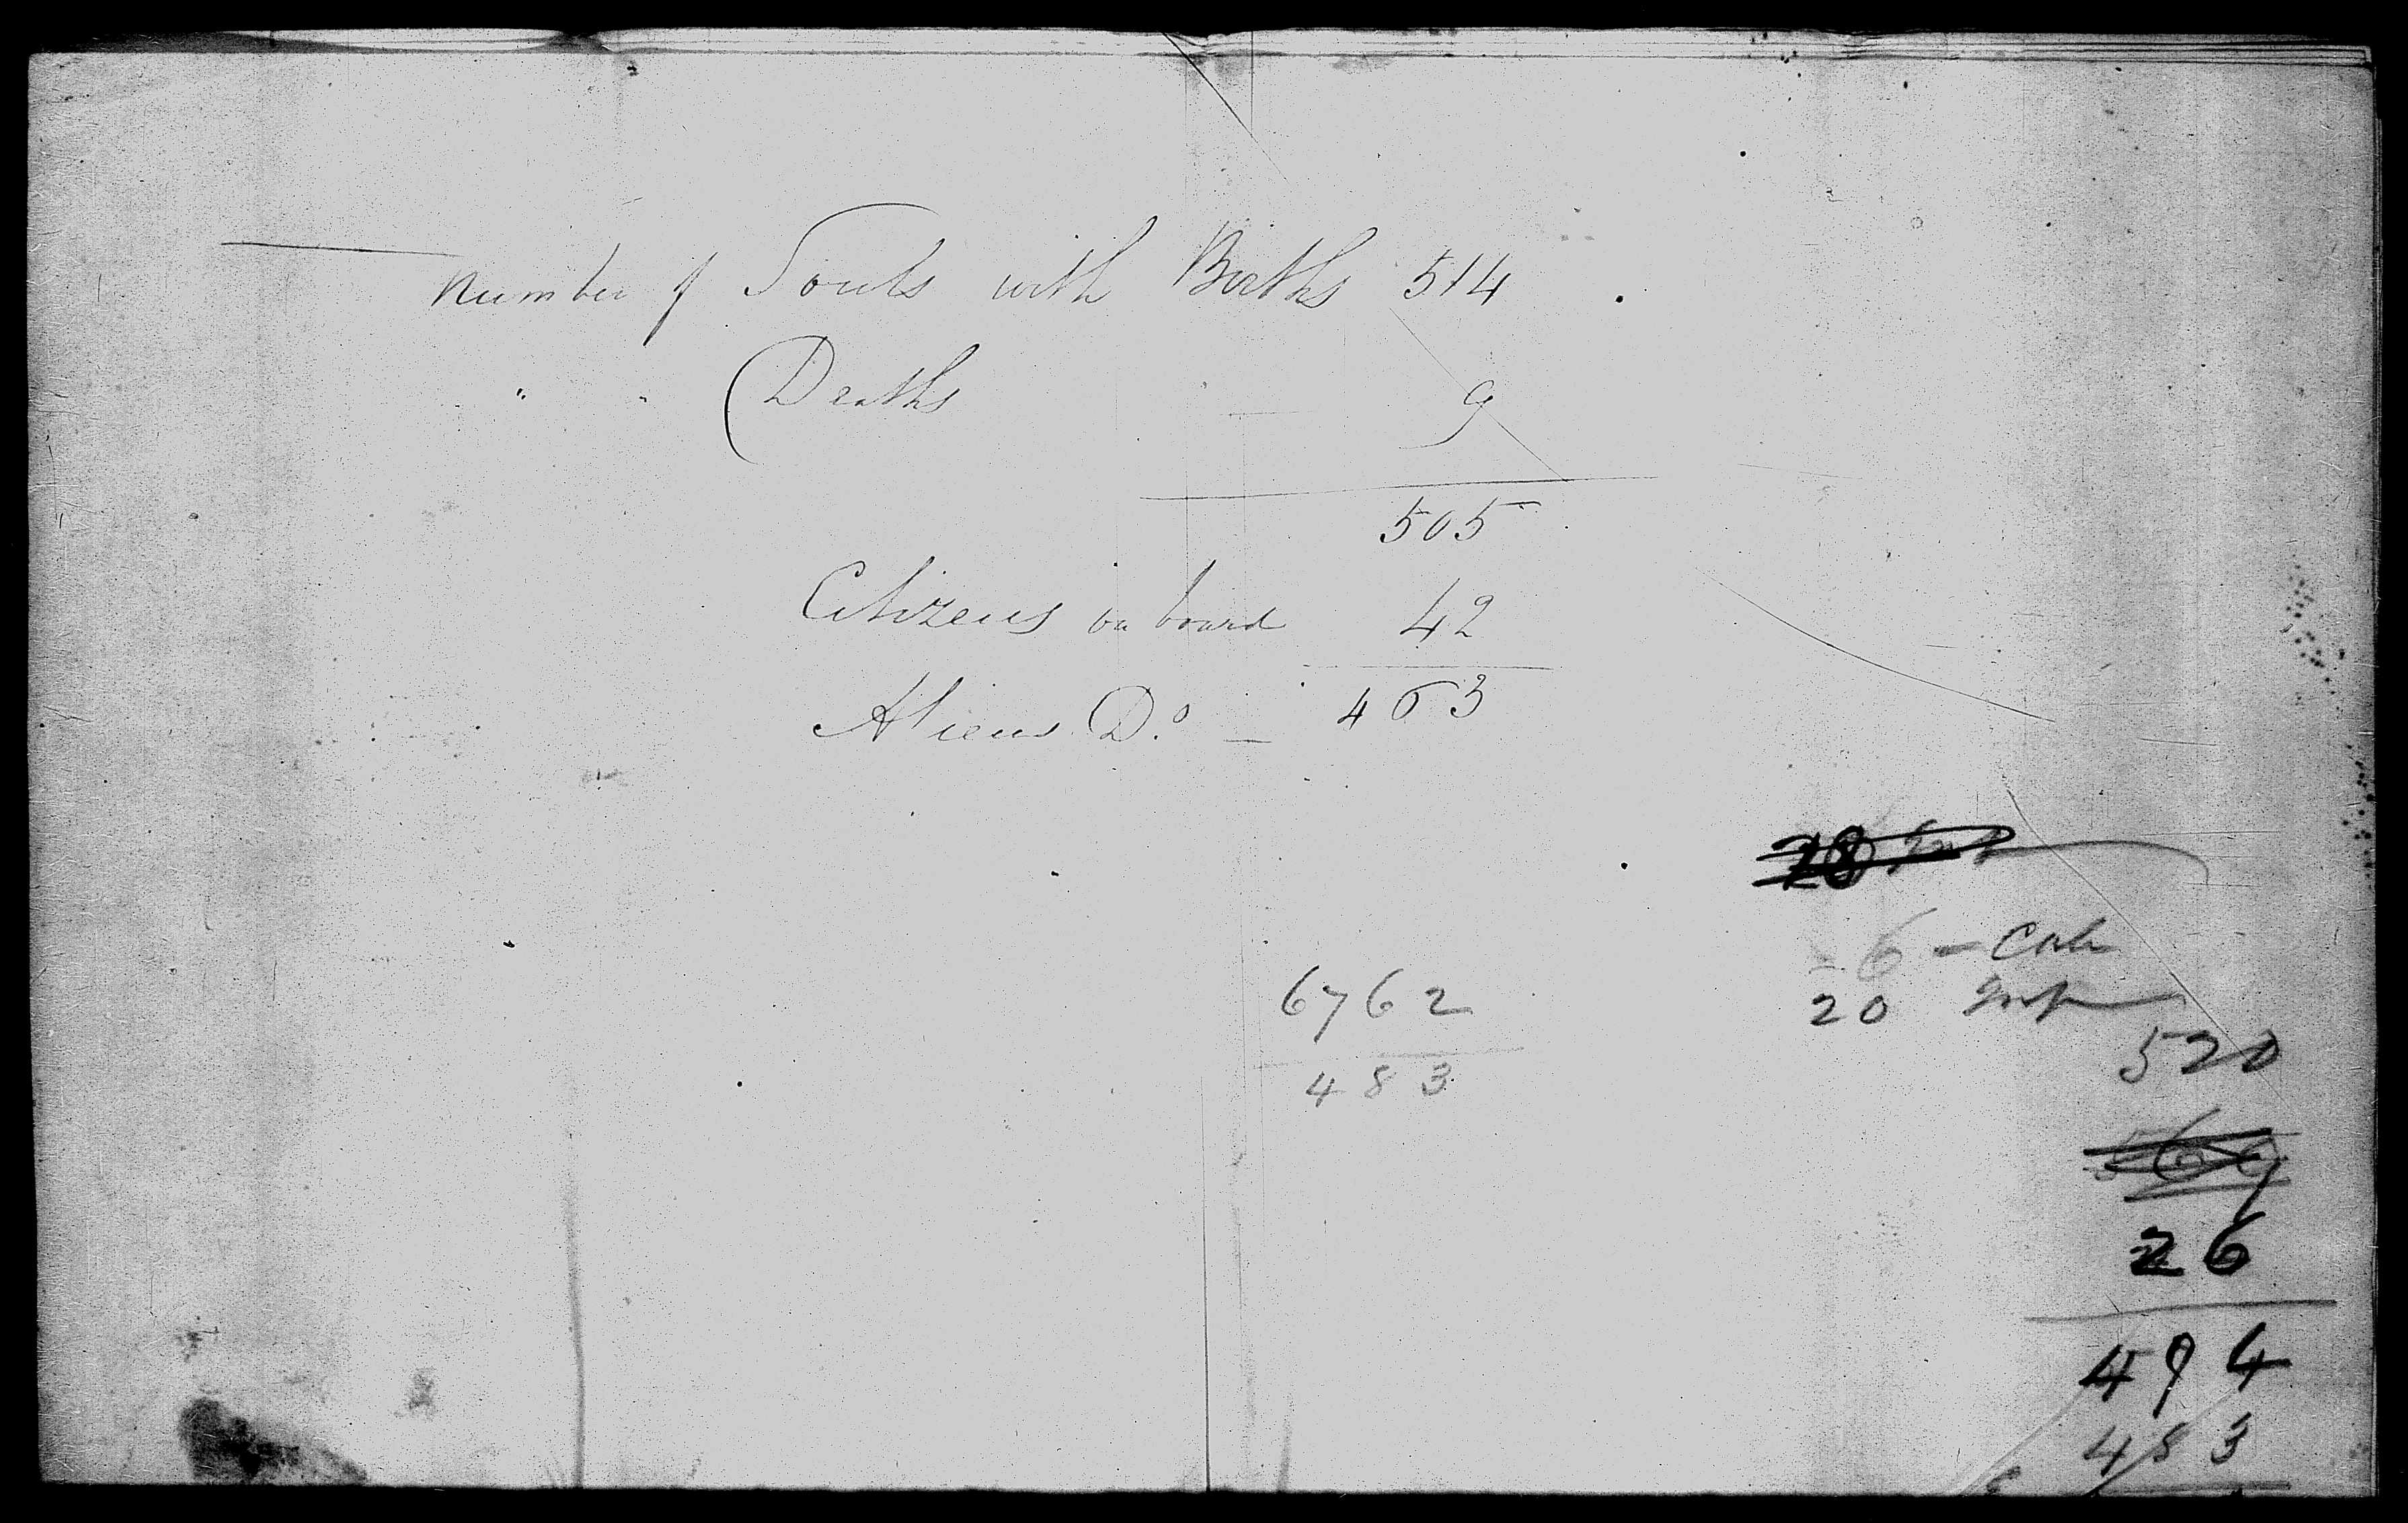 Number of Souls with Births 514
" " Deaths 9
505
Citizens on board 42
Aliens Do. — 463
6 - Cab
20
6762
520
483
26
494
483